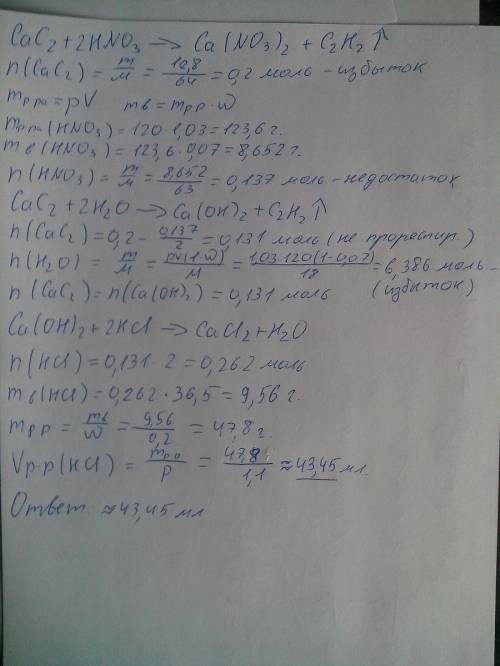 CaC₂ + 2HNO₃ → Ca(NO₃)₂ + C₂H₂↑
n(CaC₂) = m/M = 12,8/64 = 0,2 моль - избыток
mр-ра = ρV mв = mрр · ω
mр-ра(HNO₃) = 120 · 1,03 = 123,6 г.
mв(HNO₃) = 123,6 · 0,07 = 8,652 г.
n(HNO₃) = m/M = 8,652/63 = 0,137 моль - недостаток
CaC₂ + 2H₂O → Ca(OH)₂ + C₂H₂↑
n(CaC₂) = 0,2 - 0,137/2 = 0,131 моль (не прореагир.)
n(H₂O) = m/M = ρV(1-ω)/M = 1,03·120(1-0,07)/18 = 6,386 моль -
n(CaC₂) = n(Ca(OH)₂) = 0,131 моль (избыток)
Ca(OH)₂ + 2HCl → CaCl₂ + H₂O
n(HCl) = 0,131 · 2 = 0,262 моль
mв(HCl) = 0,262 · 36,5 = 9,56 г.
mрр = mв/ω = 9,56/0,2 = 47,8 г
Vр-р(HCl) = mрр/ρ = 47,8/1,1 ≈ 43,45 мл.
Ответ ≈ 43,45 мл